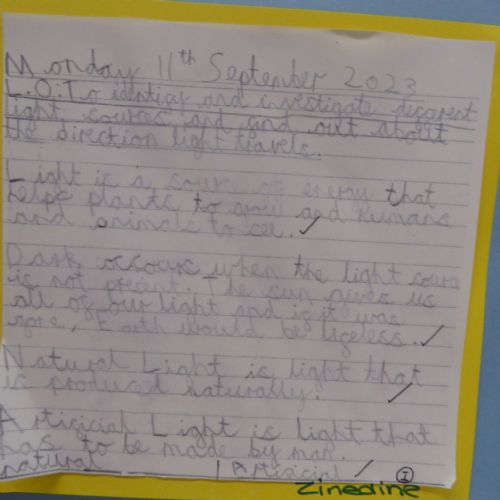 Monday 11th September 2023
L.O: To identify and investigate different
light sources and find out about
the direction light travels.
Light is a source of energy that
helps plants to grow and humans
and animals to see.
Dark occours when the light source
is not present. The sun gives us
all of our light and if it was
gone, Earth would be lifeless.
Natural Light is light that
is produced naturally.
Artificial Light is light that
has to be made by man.
natural | Artificial
I
Zinedine